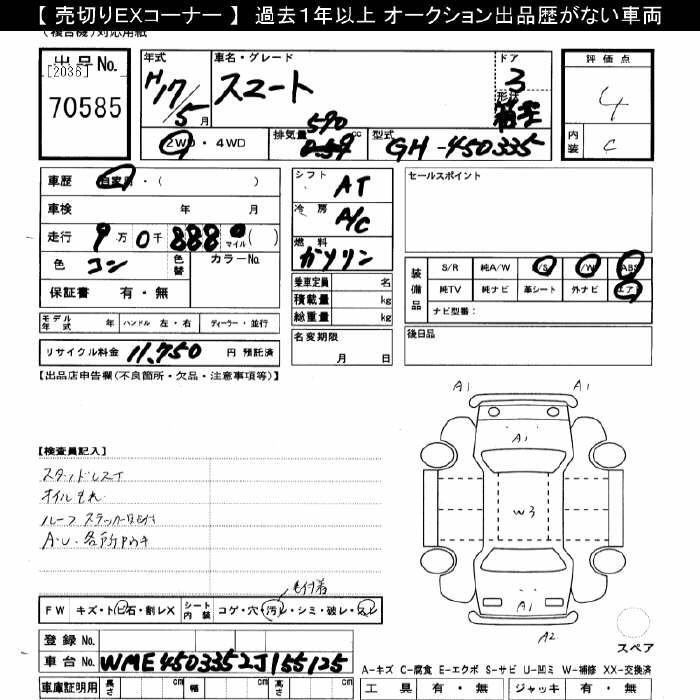 【 売切りEXコーナー 】 過去１年以上 オークション出品歴がない車両
(複合機)対応用紙
出品No.
[2036]
70585
年式
H17/5月
車名・グレード
スマート
ドア
3
形状
評価点
4
内装
C
2WD・4WD
排気量
590
0.59 cc
型式
GH-450335
車歴 自家用・( )
車検 年 月
走行 9万0千888 マイル( )
色 コン
色替
カラーNo.
保証書 有・無
シフト
AT
冷房
A/C
燃料
ガソリン
乗車定員 名
積載量 kg
総重量 kg
セールスポイント
装備品
S/R 純A/W P/S P/W ABS
純TV 純ナビ 革シート 外ナビ エアB
ナビ型番：
モデル年式 年 ハンドル 左・右 ディーラー・並行
名変期限
月 日
後日品
リサイクル料金 11,750 円 預託済
【出品店申告欄(不良箇所・欠品・注意事項等)】
A1 A1
A1
W3
A1
A2
スペア
【検査員記入】
オイルモレ
ルーフ ステッカー
FW キズ・トビ石・割レX
シート内装 コゲ・穴・汚レ・シミ・破レ・スレ
登録 No.
車台 No. WME4503352J155125
車庫証明用 長さ cm 幅 cm 高さ cm
A-キズ C-腐食 E-エクボ S-サビ U-凹ミ W-補修 XX-交換済
工具 有・無 ジャッキ 有・無